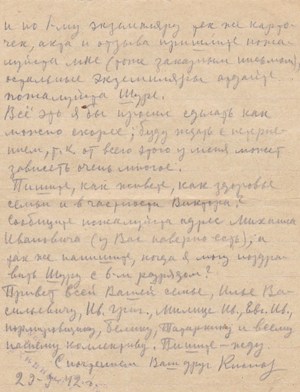 и по 1-му экземпляру тех же карто-
чек, акта и отзыва пришлите пожа-
луйста мне (тоже заказным письмом),
остальные экземпляры отдайте
пожалуйста Шуре.
Всё это я бы просил сделать как
можно скорее; буду ждать с нетерпе-
нием, т.к. от всего этого у меня может
зависеть очень многое.
Пишите, как живёте, как здоровье
семьи и в частности Виктора?
Сообщите пожалуйста адрес Михаила
Ивановича (у Вас наверно есть), а
так же напишите, когда я могу поздра-
вить Шуру с 6-м разрядом?
Привет всей Вашей семье, Илье Ва-
сильевичу, Ив. Григ., Милице Ив., Евг. Ив.,
Белкину, и всему
нашему коллективу. Пишите - жду
С почтением Ваш друг